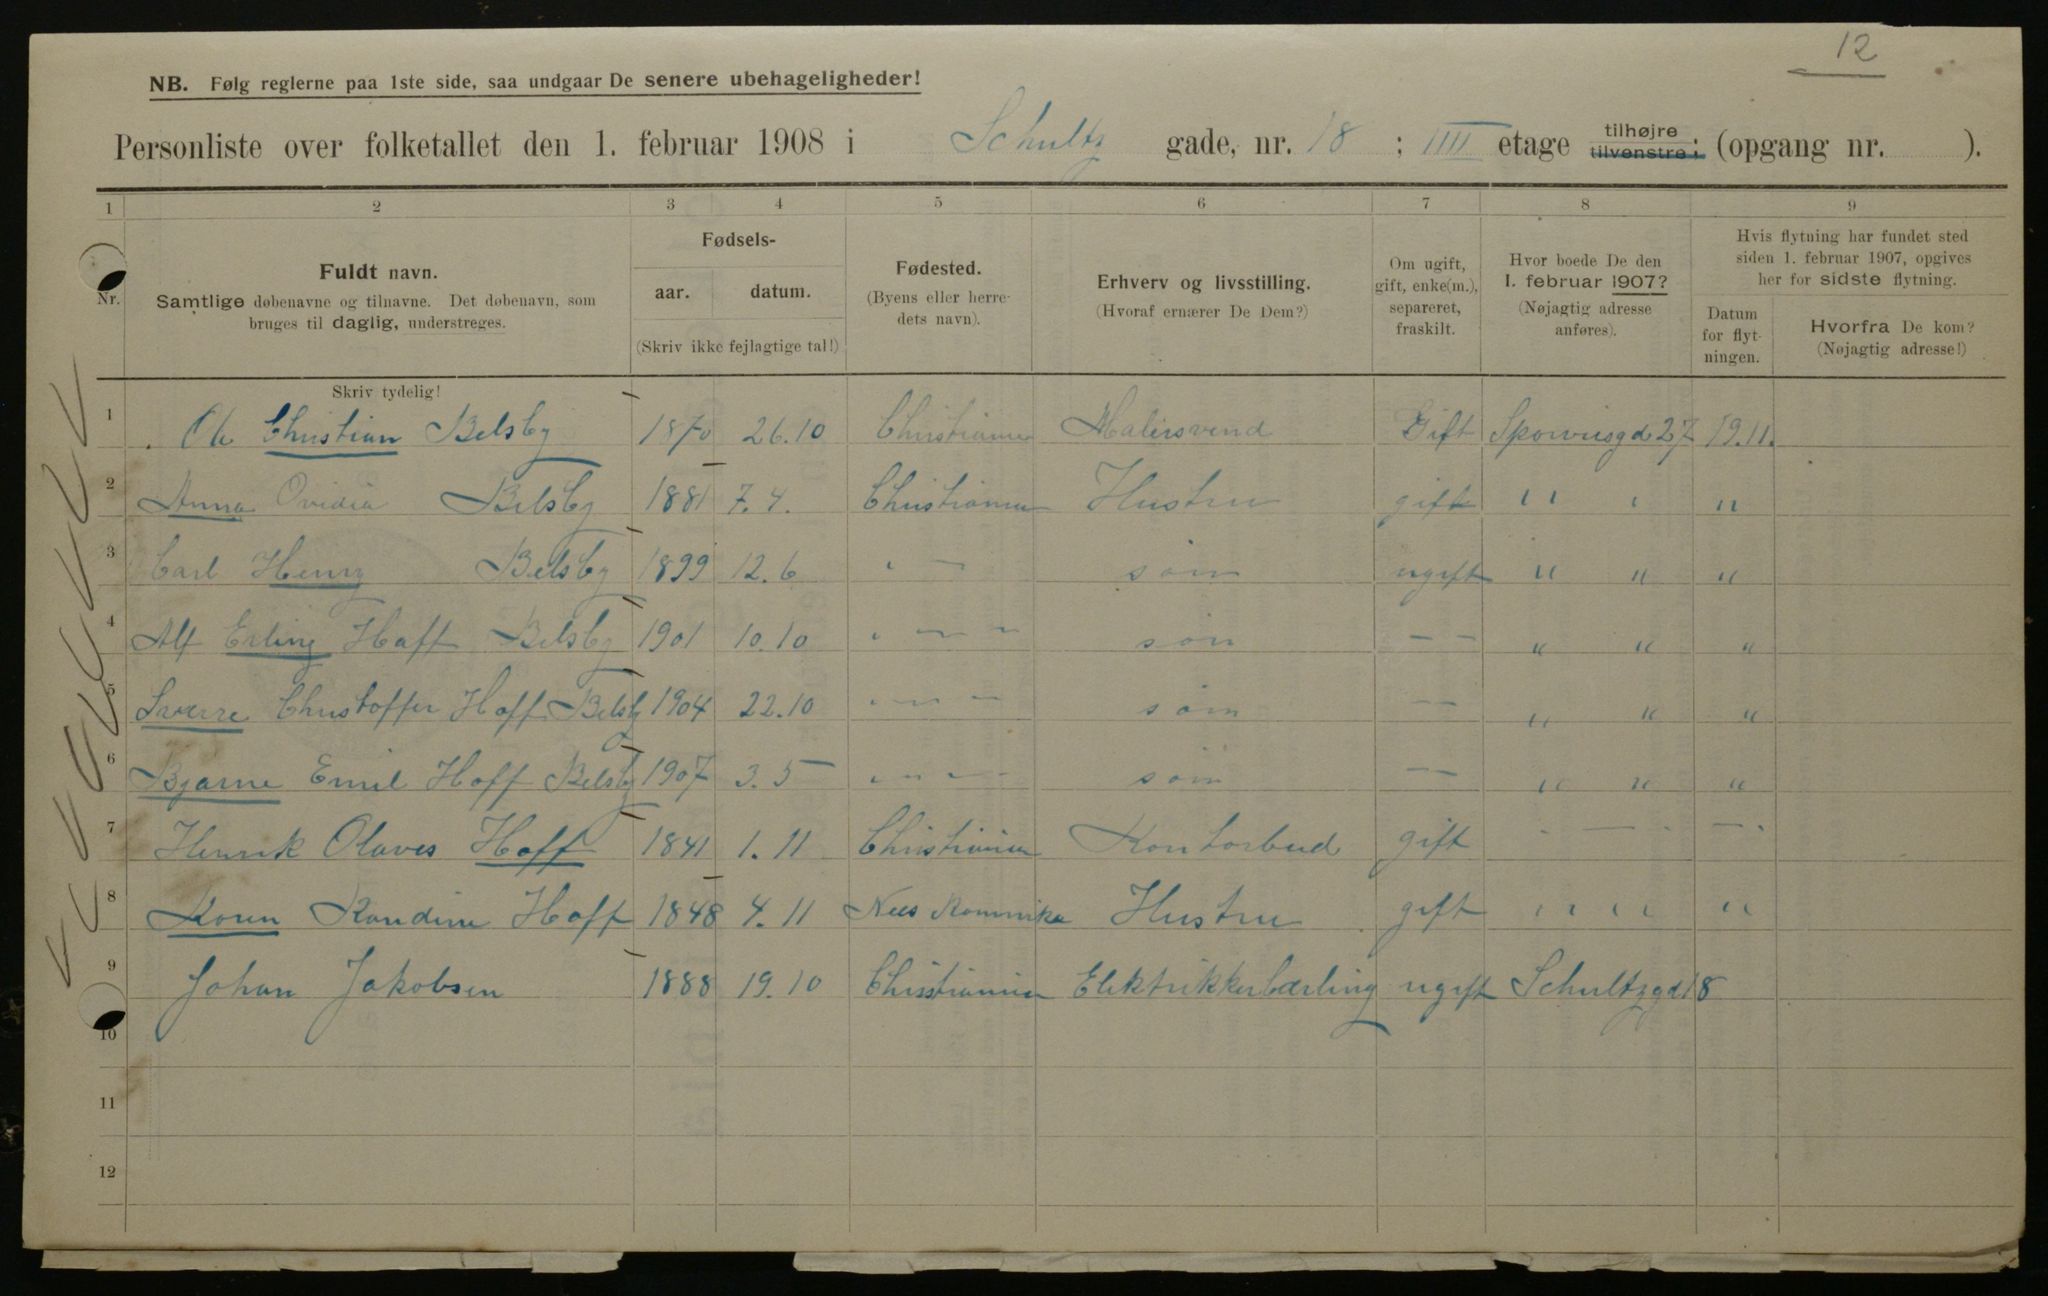 12
NB. Følg reglerne paa 1ste side, saa undgaar De senere ubehageligheder!
Personliste over folketallet den 1. februar 1908 i Schultz gade, nr. 18 ; IIII etage tilhøjre tilvenstre; (opgang nr. ).
1 2 3 4 5 6 7 8 9
Nr.
Fuldt navn.
Samtlige døbenavne og tilnavne. Det døbenavn, som
bruges til daglig, understreges.
Skriv tydelig!
Fødsels-
aar. datum.
(Skriv ikke fejlagtige tal!)
Fødested.
(Byens eller herre-
dets navn).
Erhverv og livsstilling.
(Hvoraf ernærer De Dem?)
Om ugift,
gift, enke(m.),
separeret,
fraskilt.
Hvor boede De den
1. februar 1907?
(Nøjagtig adresse
anføres).
Hvis flytning har fundet sted
siden 1. februar 1907, opgives
her for sidste flytning.
Datum
for flyt-
ningen.
Hvorfra De kom?
(Nøjagtig adresse!)
1 Ole Christian Belsby 1870 26.10 Christiania Malersvend Gift 27 19.11.
2 Anna Ovidia Belsby 1881 7.4. Christiania Hustru gift " " "
3 Carl Henry Belsby 1899 12.6 " — søn ugift " " "
4 Alf Erling Hoff Belsby 1901 10.10 " — — søn — — " " "
5 Sverre Christoffer Hoff Belsby 1904 22.10 " — — søn — — " " "
6 Bjarne Emil Hoff Belsby 1907 3.5 " — — søn — — " " "
7 Henrik Olaves Hoff 1841 1.11 Christiania Kontorbud gift - — - —
8 Karen Kandine Hoff 1848 4.11 Nes Hustru gift " " "
9 Johan Jakobsen 1888 19.10 Christiania Elektrikkerlærling ugift Schultzgd 18
10
11
12